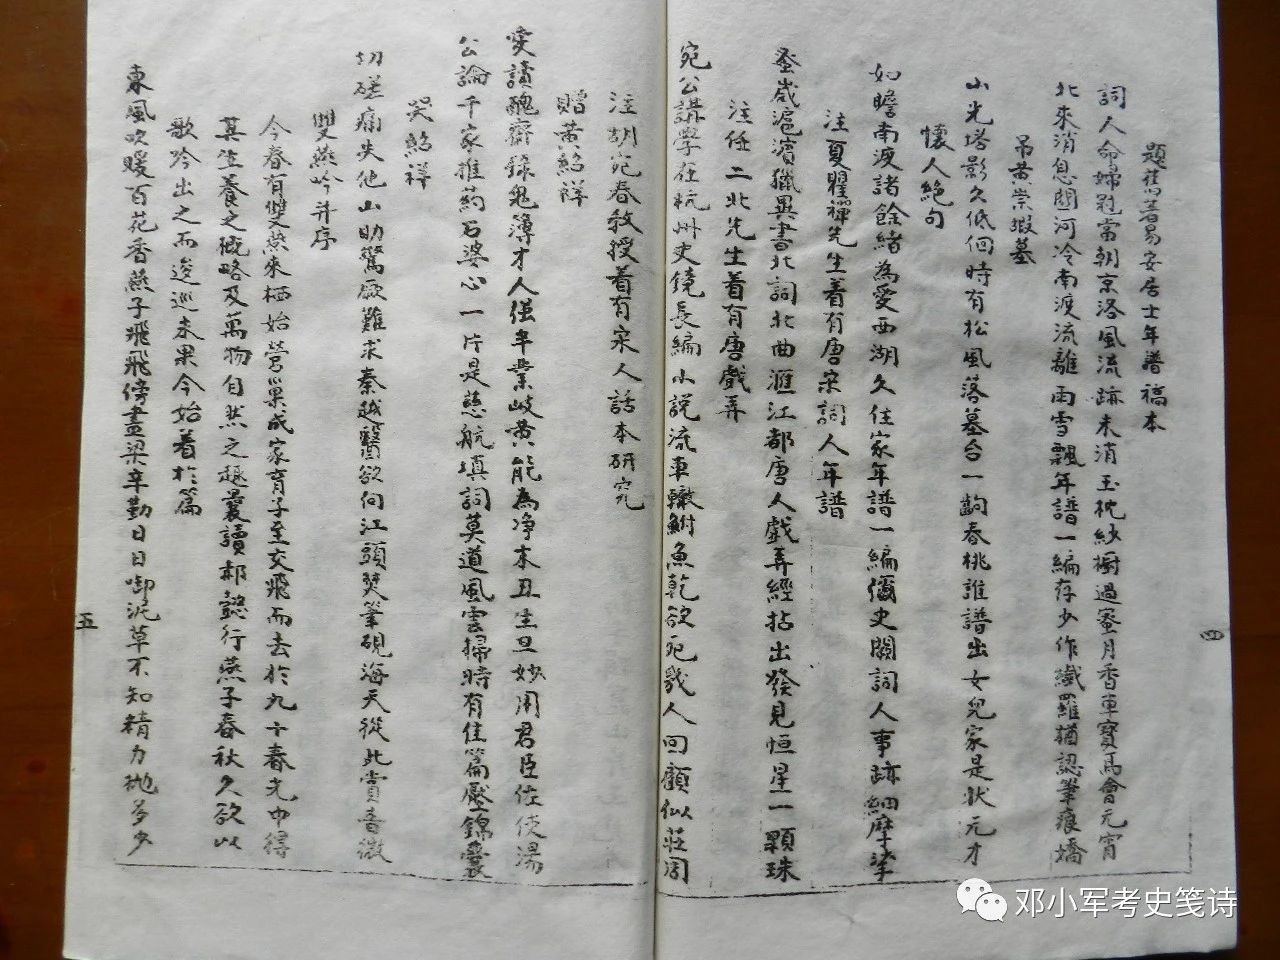 題舊著易安居士年譜稿本
詞人命婦冠當朝京洛風流跡未消玉枕紗櫥過蜜月香車寶馬會元宵
北來消息關河冷南渡流離雨雪飄年譜一編存少作纖羅猶認筆痕嬌
吊黄崇嘏墓
山光塔影久低佪時有松風落墓台一齣春桃誰譜出女兒家是狀元才
懷人絶句
如瞻南渡諸餘緒為愛西湖久住家年譜一編儷史闗詞人事跡細摩挲
注夏瞿禪先生着有唐宋詞人年譜
蚤嵗滬濱獵異書北詞北曲滙江都唐人戲弄經拈出發見恒星一顆珠
注任二北先生着有唐戲弄
宛公講學在杭州史鏡長編小説流車轍鮒魚乾欲死幾人回顧似莊周
四
注胡宛春教授着有宋人話本研究
贈黄紹祥
愛讀醜齋錄鬼薄才人强半業岐黄能為净末丑生旦妙用君臣佐使湯
公論千家推葯石婆心一片是慈航填詞莫道風雲掃時有佳篇壓錦囊
哭紹祥
切磋痛失他山助驚厥難求秦越醫欲向江頭焚筆硯海天從此賞音微
雙燕吟并序
今春有雙燕來栖始營巢成家育子至交飛而去於九十春光中得
其生養之概略及萬物自然之趣曩讀郝懿行燕子春秋久欲以
歌吟出之而逡巡未果今始着於篇
東風吹暖百花香燕子飛飛傍畫梁辛勤日日啣泥草不知精力抛多少
五
邓小军考史笺诗